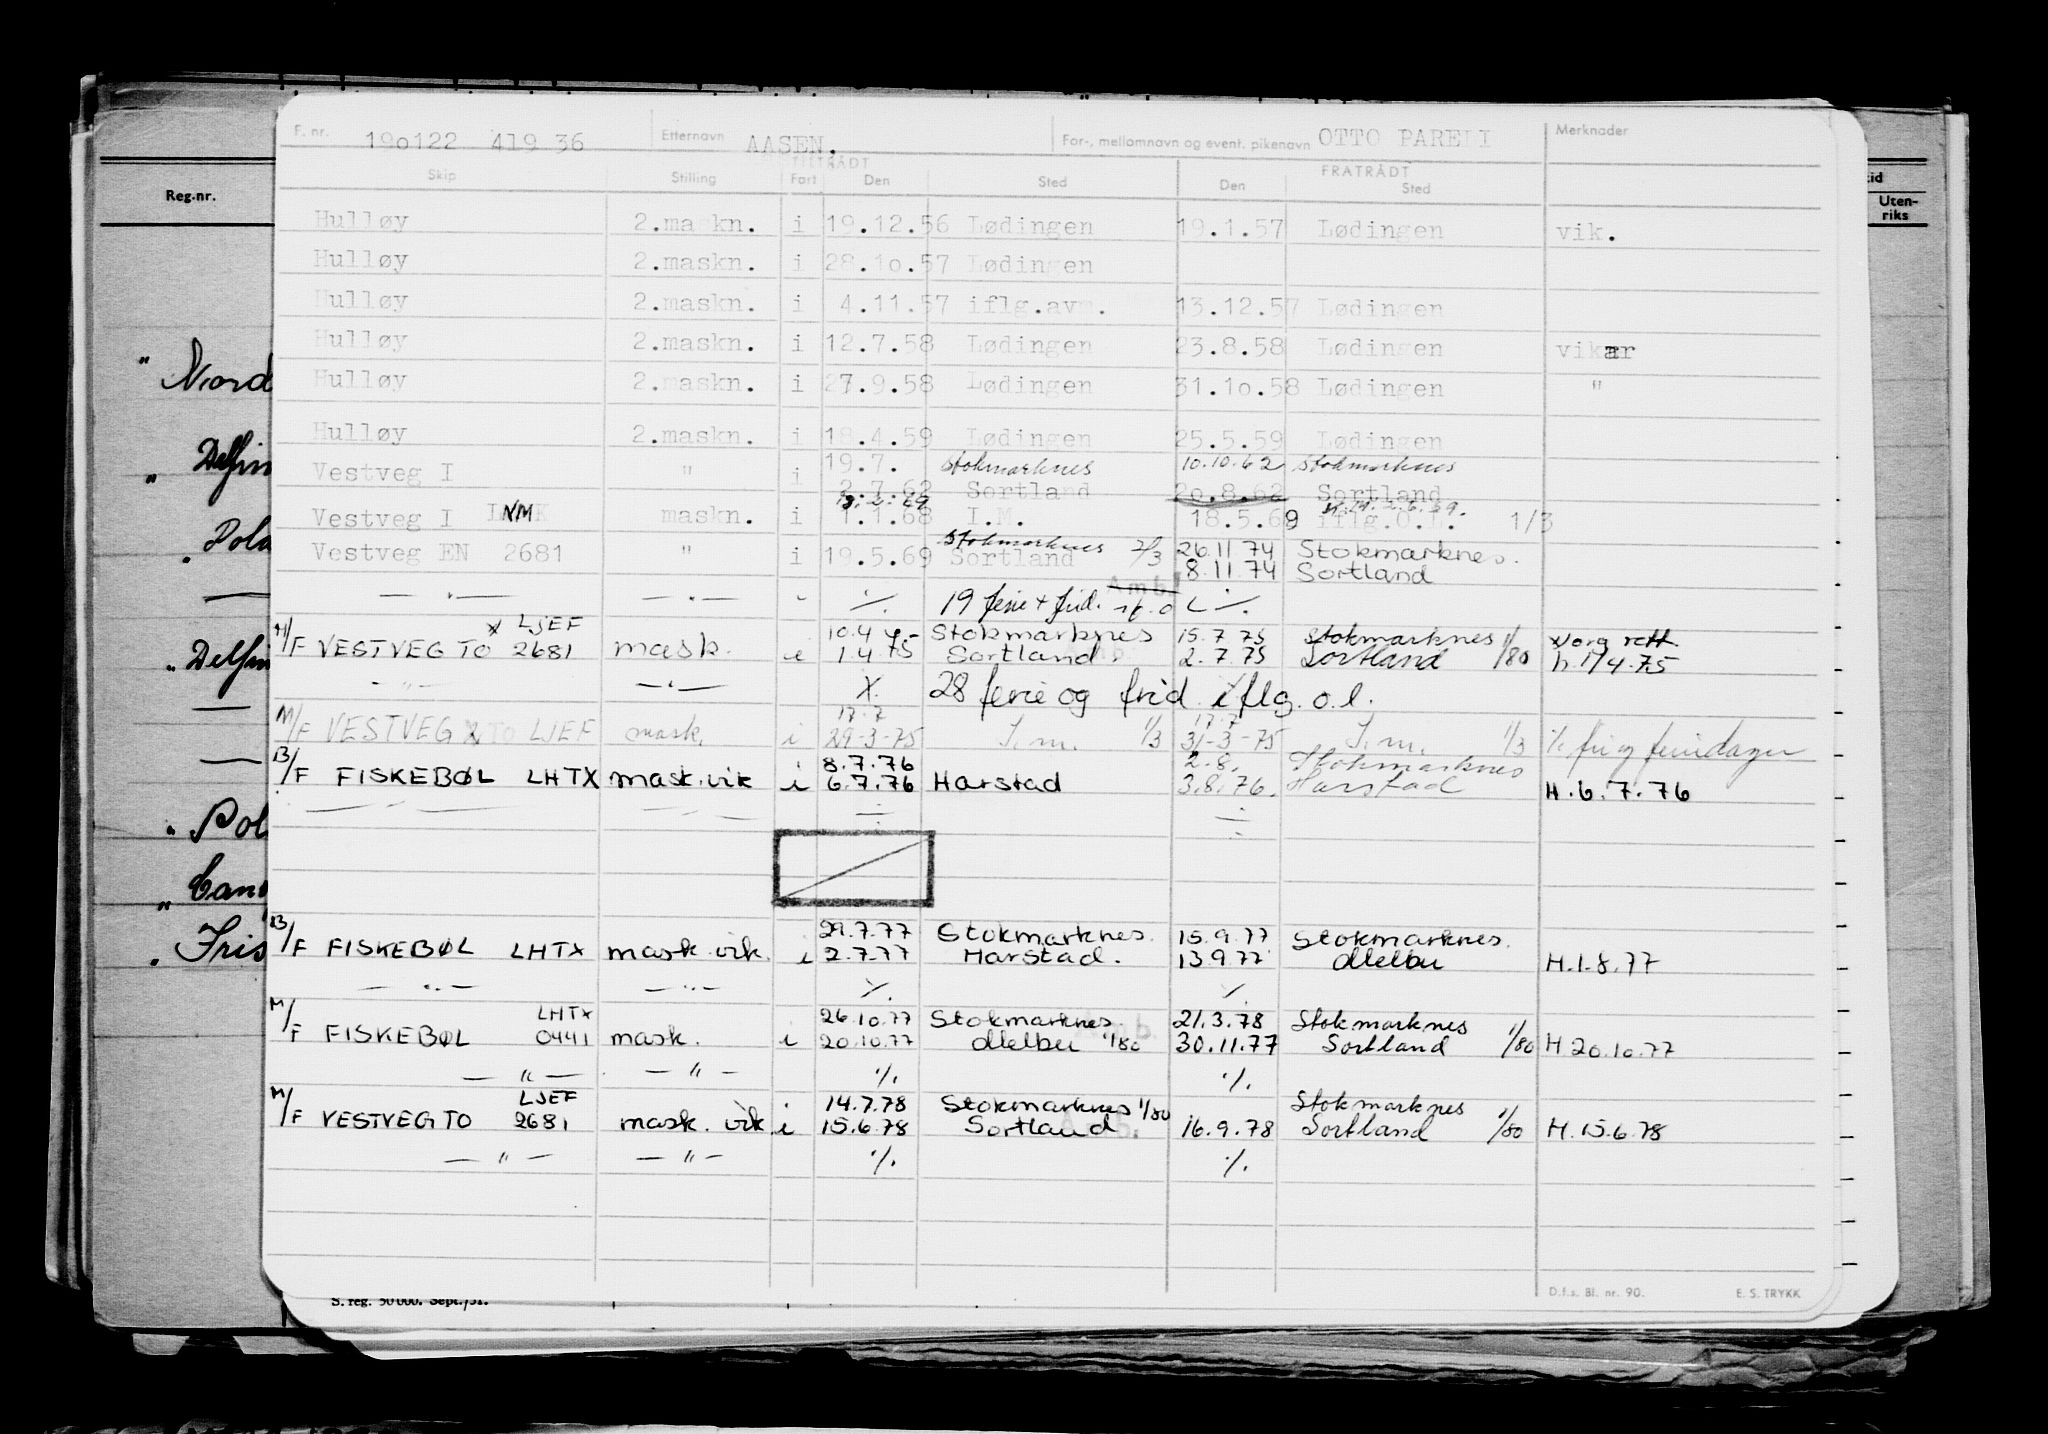 F. nr. 190122 419 36 Etternavn AASEN. For-, mellomnavn og event. pikenavn OTTO PARELI Merknader
TILTRÅDT FRATRÅDT
Skip Stilling Fart Den Sted Den Sted
Reg.nr.
Uten-
riks
Hulløy 2.maskn. i 19.12.56 Lødingen 19.1.57 Lødingen vik.
Hulløy 2.maskn. i 28.10.57 Lødingen
Hulløy 2.maskn. i 4.11.57 iflg.avm. 13.12.57 Lødingen
Hulløy 2.maskn. i 12.7.58 Lødingen 23.8.58 Lødingen vikar
Hulløy 2.maskn. i 27.9.58 Lødingen 31.10.58 Lødingen "
Hulløy 2.maskn. i 18.4.59 Lødingen 25.5.59 Lødingen
19.7. Stokmarknes 10.10.62 Stokmarknes
Vestveg I " i 2.7.62 Sortland 20.8.62 Sortland
Vestveg I maskn. i 1.1.68 I.M. 18.5.69 iflg.O.L. 1/3
Stokmarknes 2/3 26.11.74 Stokmarknes.
Vestveg EN 2681 " i 19.5.69 Sortland 8.11.74 Sortland
— " — — " — " ·/. 19 ferie + frid. ·/.
LJEF 10.4 Stokmarknes 15.7.75 Stokmarknes 1/80
M/F VESTVEG TO 2681 mask. i 1.4.75 Sortland. 2.7.75 Sortland h. 1/4.75
— " — — " — ·/. 28 ferie og frid iflg. o.l.
17.7 17.7
M/F VESTVEG TO LJEF mask. i 29-3-75 I.m. 1/3 31-3-75 I.m. 1/3 ·/. fri og feriedager
8.7.76 2.8. Stokmarknes
B/F FISKEBØL LHTX mask.vik i 6.7.76 Harstad 3.8.76. Harstad H.6.7.76
29.7.77 Stokmarknes. 15.9.77 Stokmarknes.
B/F FISKEBØL LHTX mask.vik. i 2.7.77 Harstad. 13.9.77 Melbu H.1.8.77
— " — — " — ·/. ·/.
LHTX 26.10.77 Stokmarknes. 21.3.78 Stokmarknes
M/F FISKEBØL 0441 mask. i 20.10.77 Melbu 1/80 30.11.77 Sortland 1/80 H 20.10.77
— " — — " — ·/. ·/.
LJEF 14.7.78 Stokmarknes 1/80 Stokmarknes
M/F VESTVEG TO 2681 mask. vik i 15.6.78 Sortland 16.9.78 Sortland 1/80 H.15.6.78
— " — — " — ·/. ·/.
S. reg. 50 000. Sept./51.
D.f.s. Bl. nr. 90. E. S. TRYKK